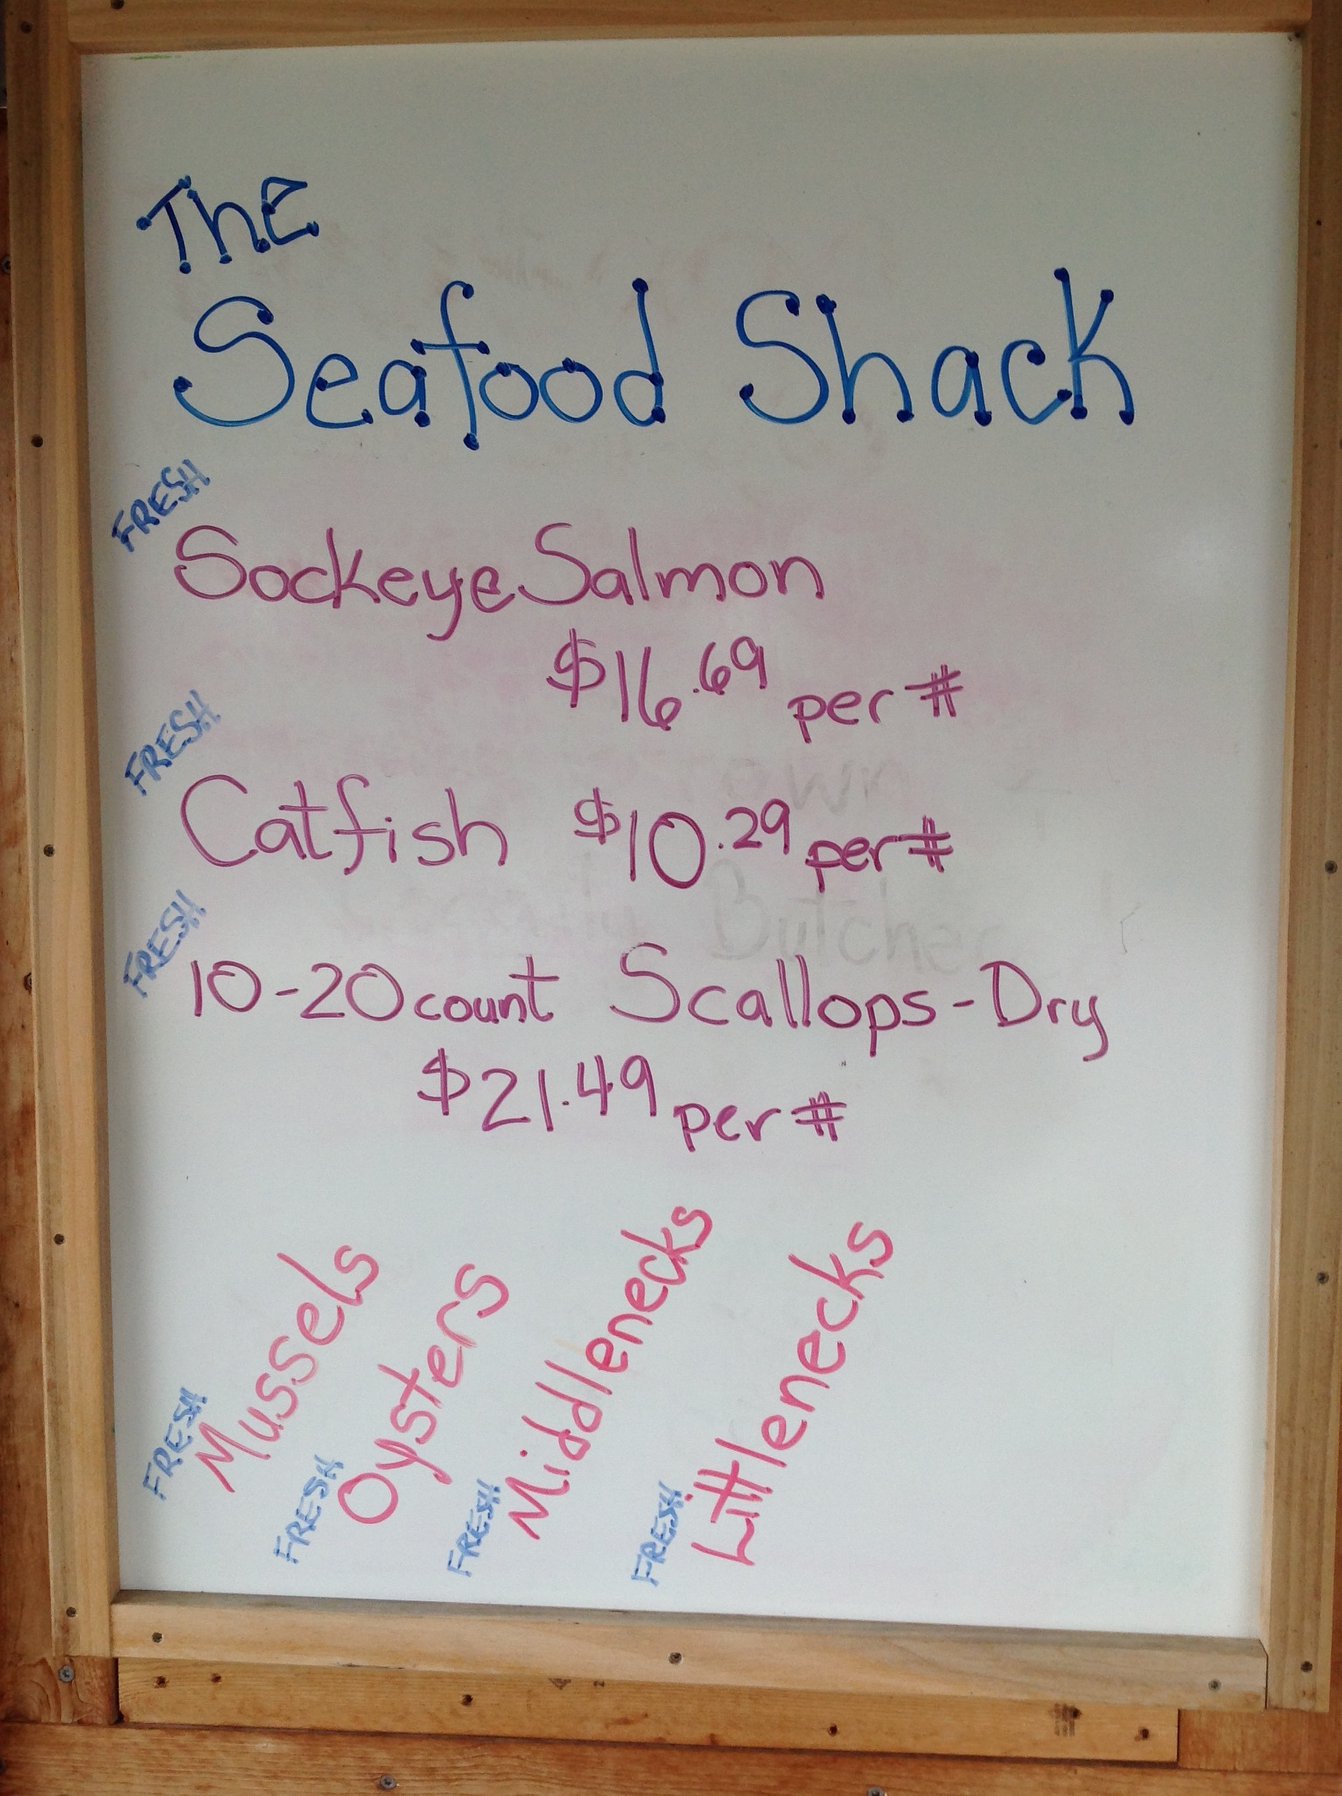 The
Seafood Shack
FRESH
Sockeye Salmon
$16.69 per #
FRESH
Catfish $10.29 per #
FRESH
10-20 count Scallops-Dry
$21.49 per #
FRESH Mussels
FRESH Oysters
FRESH Middlenecks
FRESH Littlenecks
Butcher